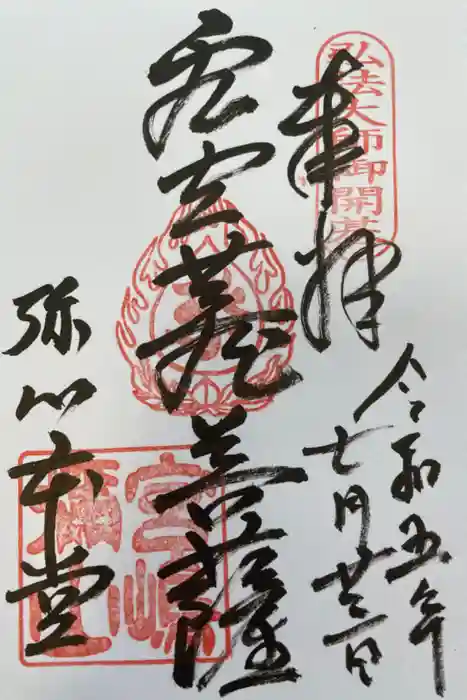 弘法大師御開基
奉拝
令和五年
七月廿二日
虚空蔵菩薩
宮嶋
彌山
弥山本堂